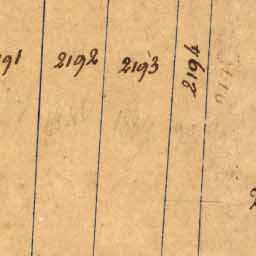 2192
2193
2194